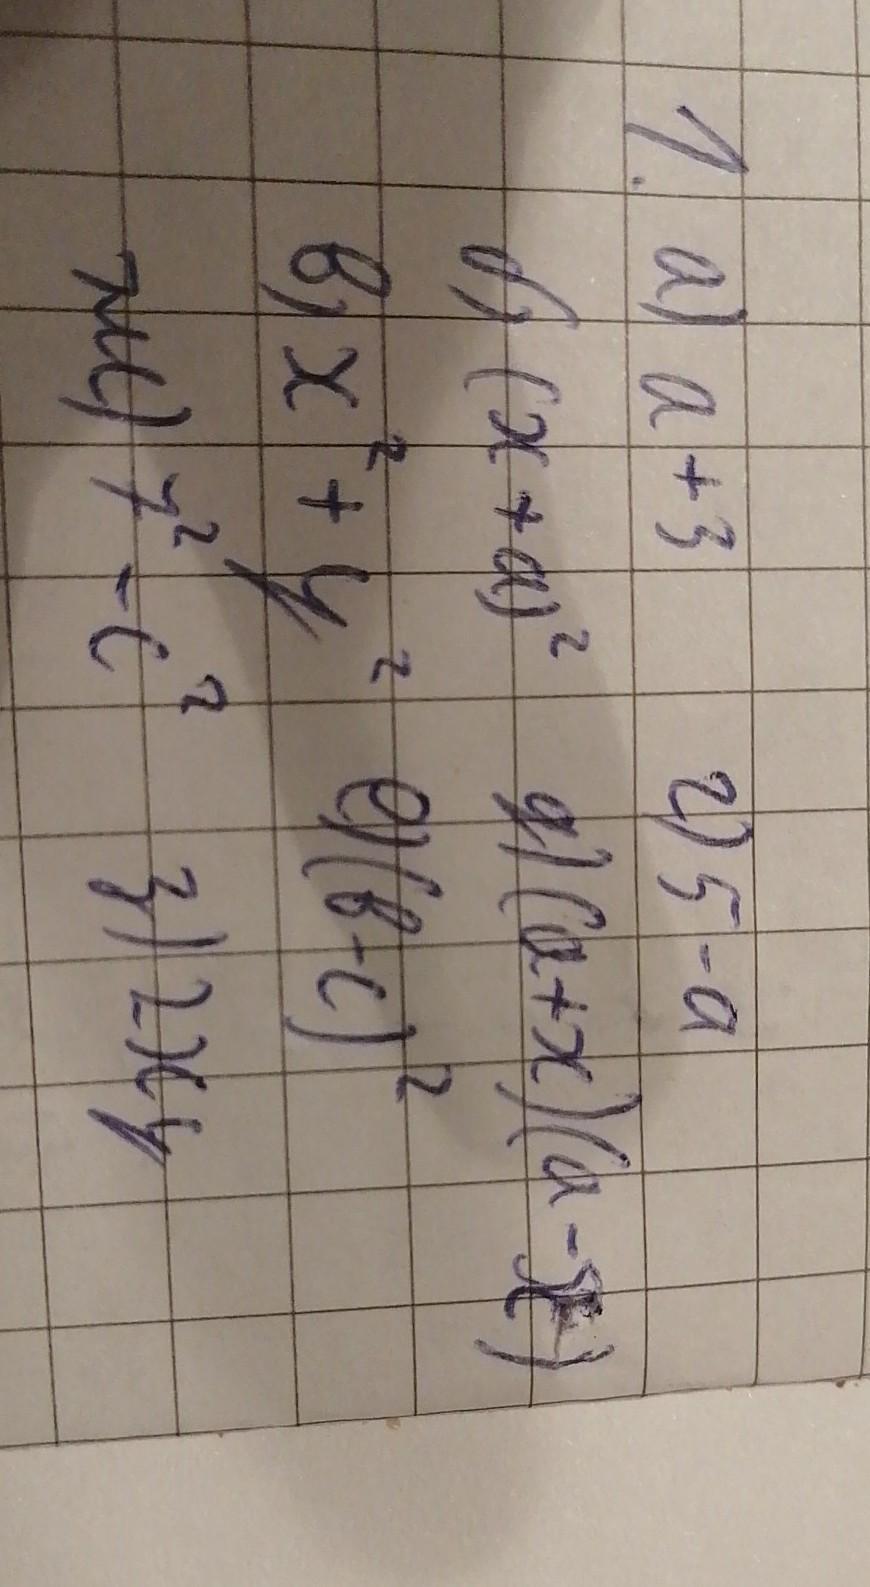 1. а) a + 3 г) 5 - a
б) (x + a)² д) (a + x)(a - x)
в) x² + y² е) (b - c)²
ж) 7² - c² з) 2xy